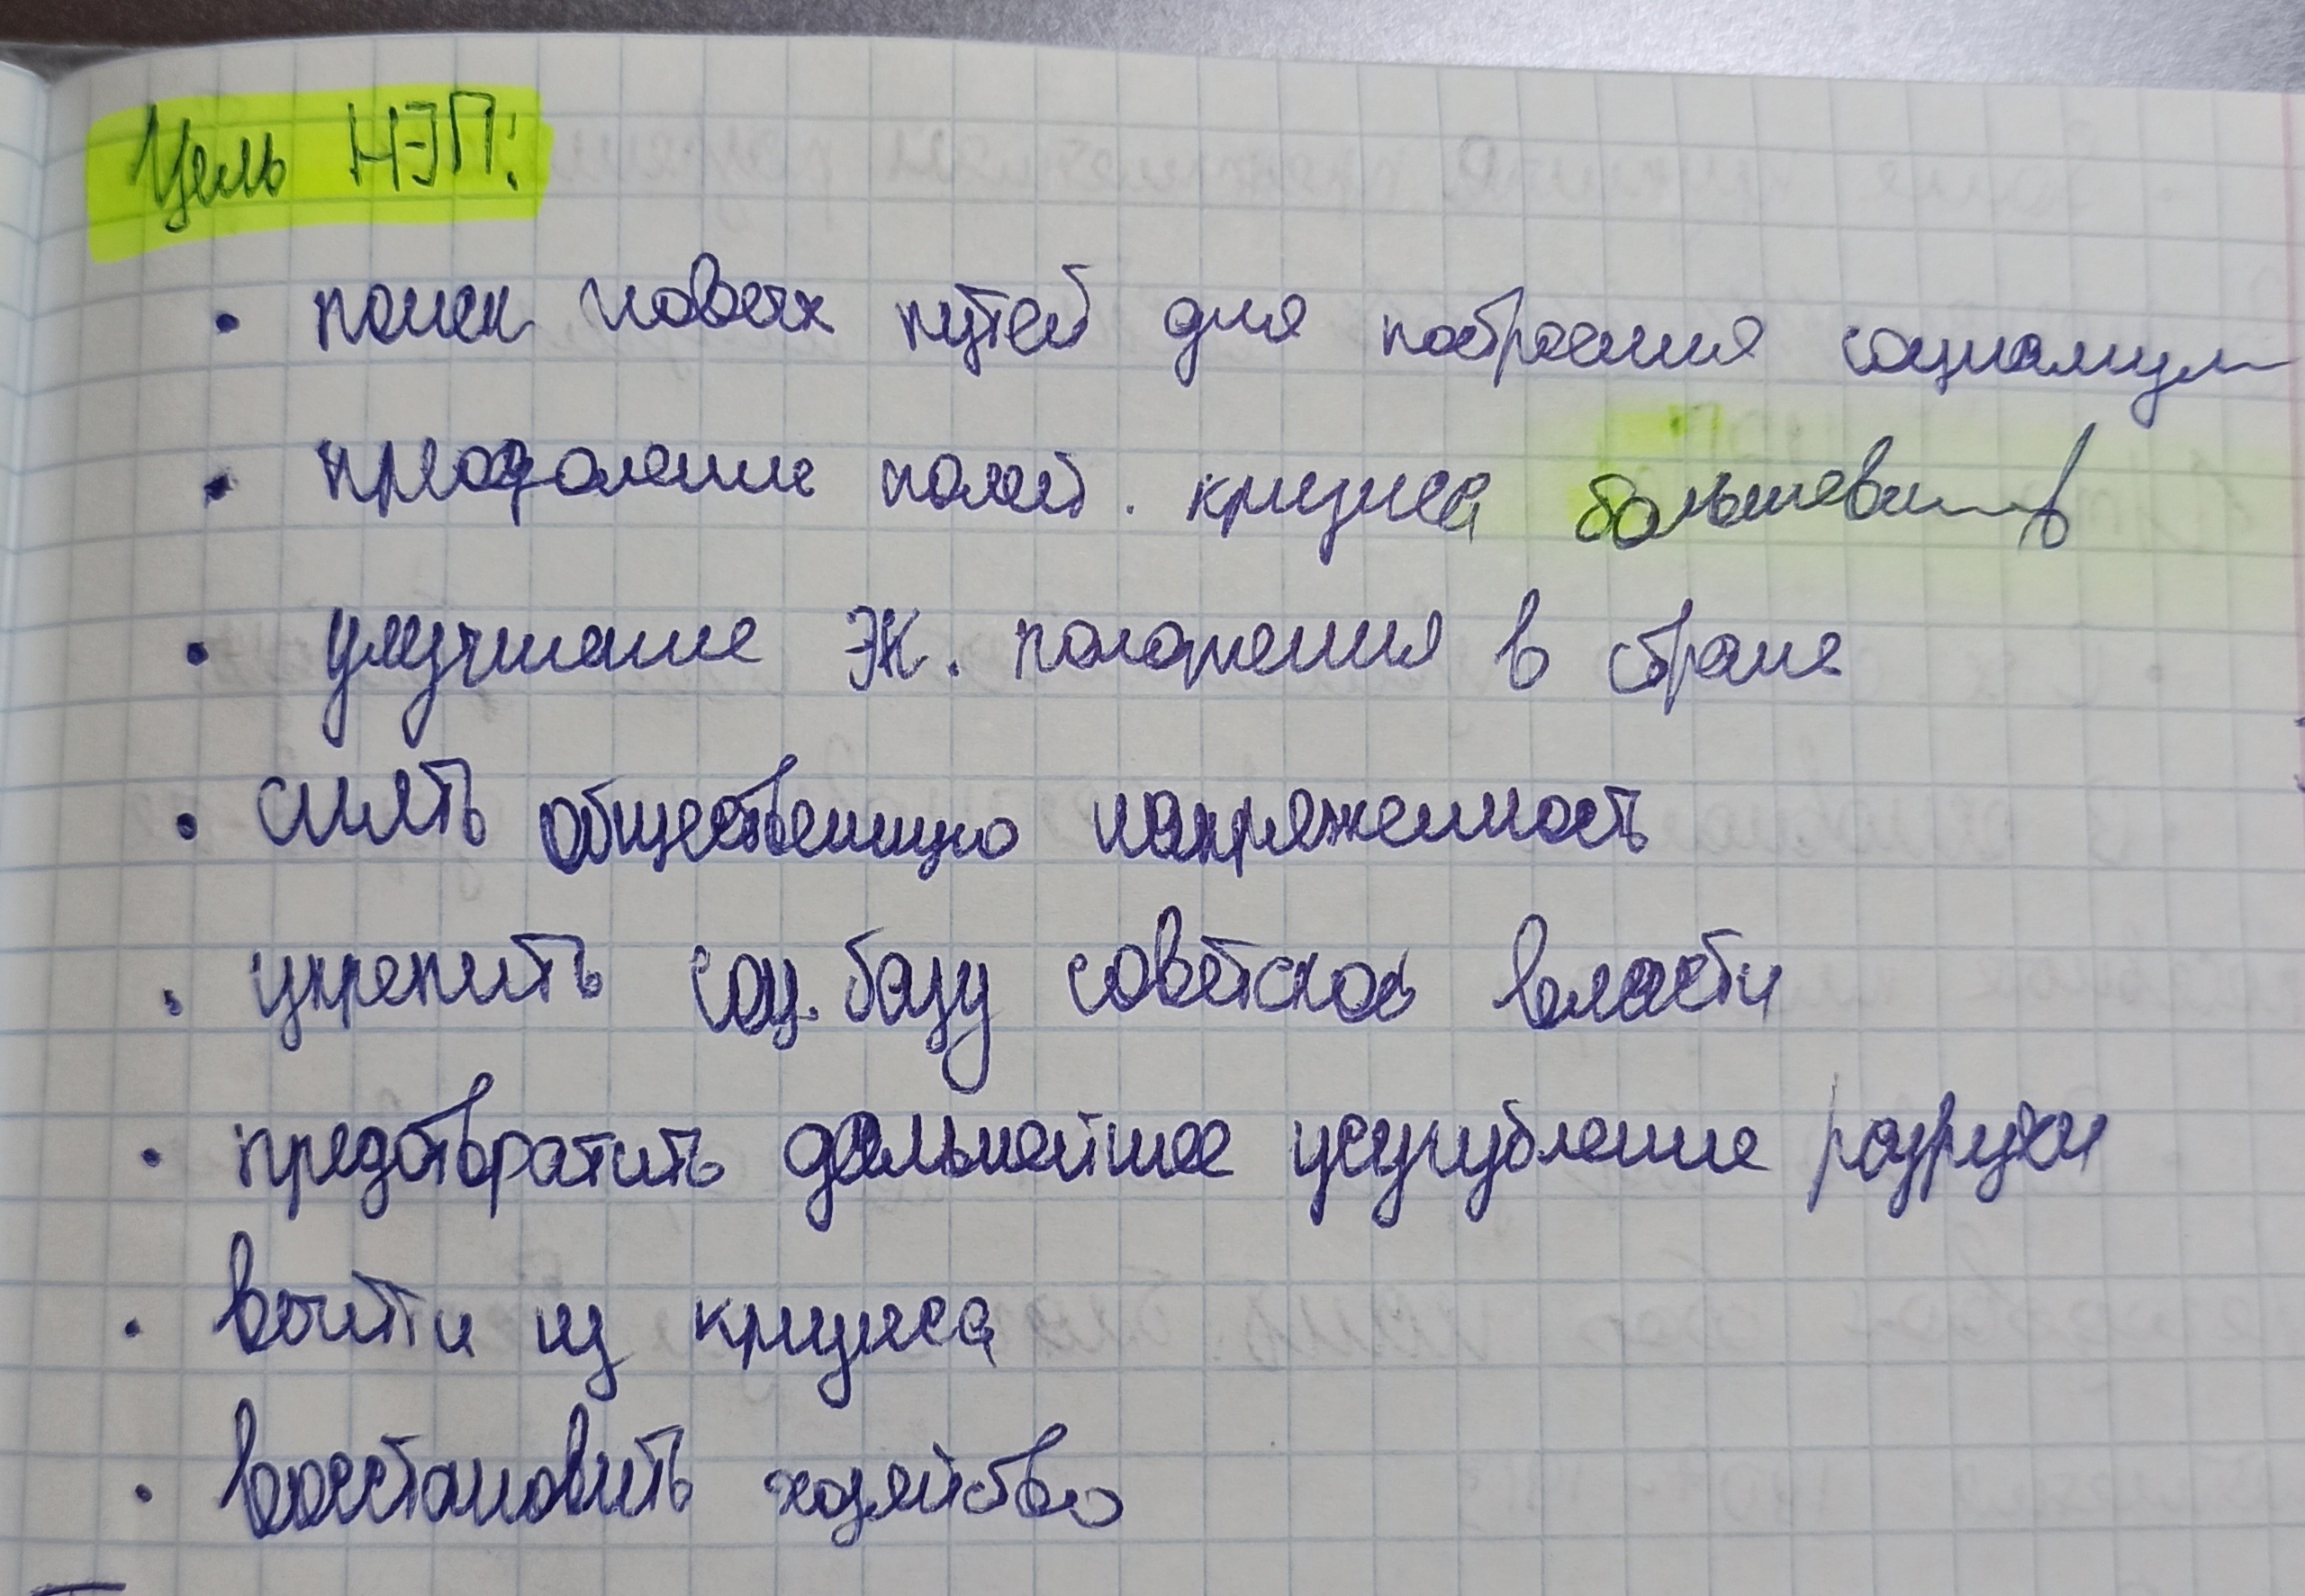 Цель НЭП:
• поиск новых путей для построения социализм
• преодоление полит. кризиса большевиков
• улучшение эк. положения в стране
• снять общественную напряженность
• укрепить соц. базу советской власти
• предотвратить дальнейшее усугубление разрухи
• выйти из кризиса
• восстановить хозяйство